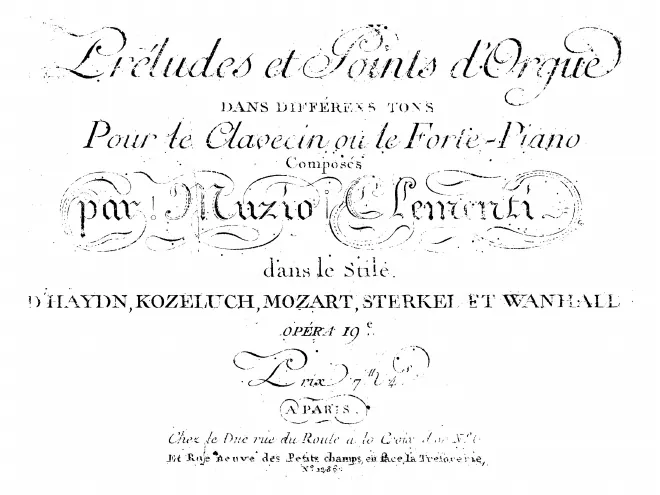 Préludes et Points d'Orgue
DANS DIFFÉRENS TONS
Pour le Clavecin ou le Forte-Piano
Composés
par Muzio Clementi
dans le Stile
D'HAYDN, KOZELUCH, MOZART, STERKEL ET WANHALL
OPÉRA 19e
Prix 7tt 4s
A PARIS.
Chez le Duc rue du Roule à la Croix d'or
Et Rue neuve des Petits champs, en face la Tresorerie,